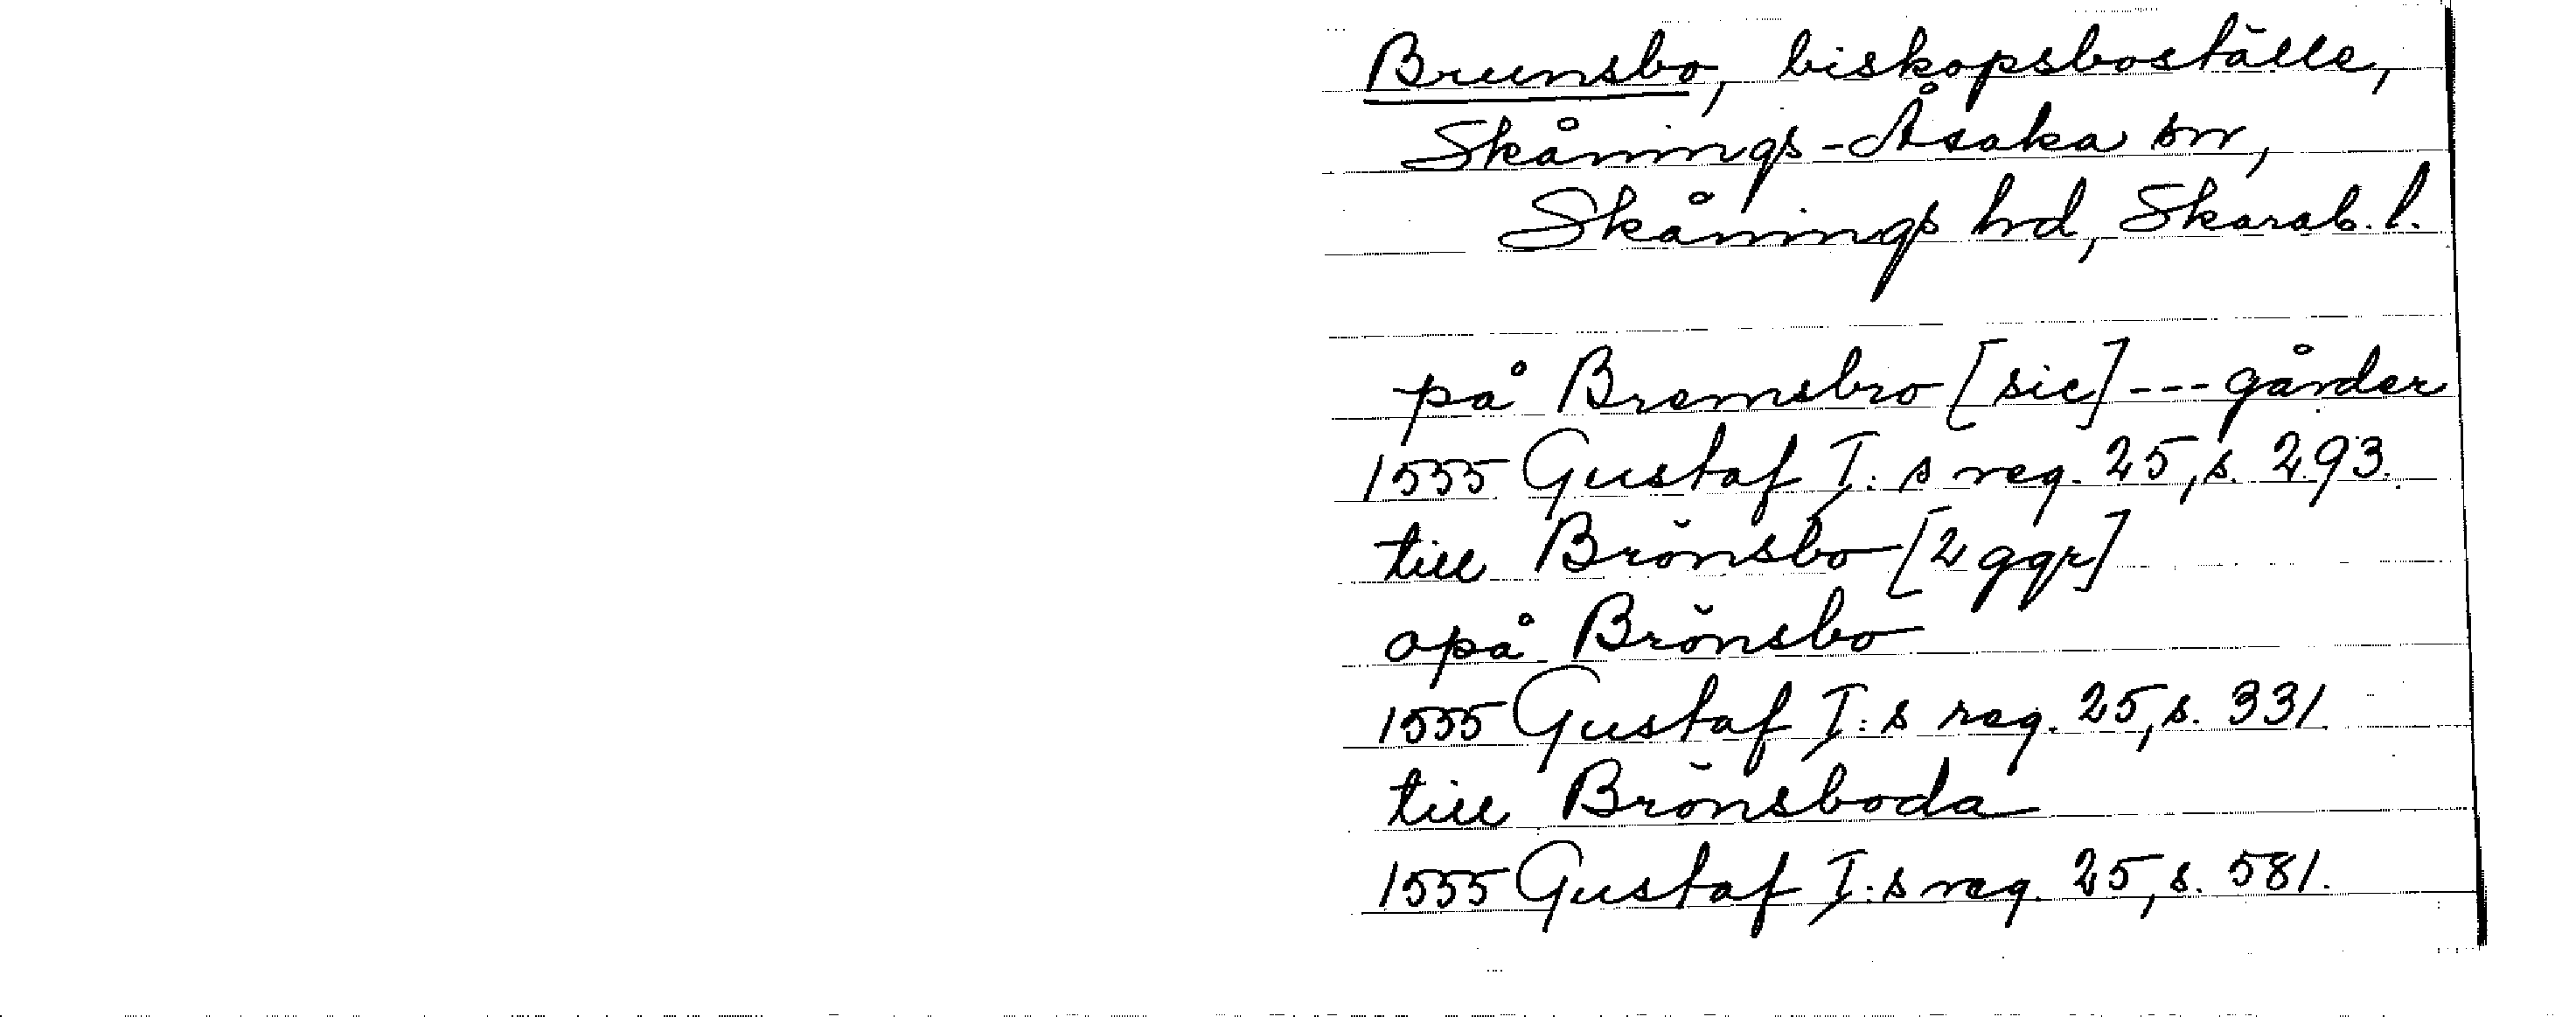 Brunsbo, biskopsboställe,
Skånings-Åsaka sn,
Skånings hd, Skarab. l.
på Bremsbro [sic] --- gårder
1555 Gustaf I:s reg. 25, s. 293.
till Brŏnsbo [2 ggr]
opå Brŏnsbo
1555 Gustaf I:s reg. 25, s. 331
till Brŏnsboda
1555 Gustaf I:s reg. 25, s. 581.